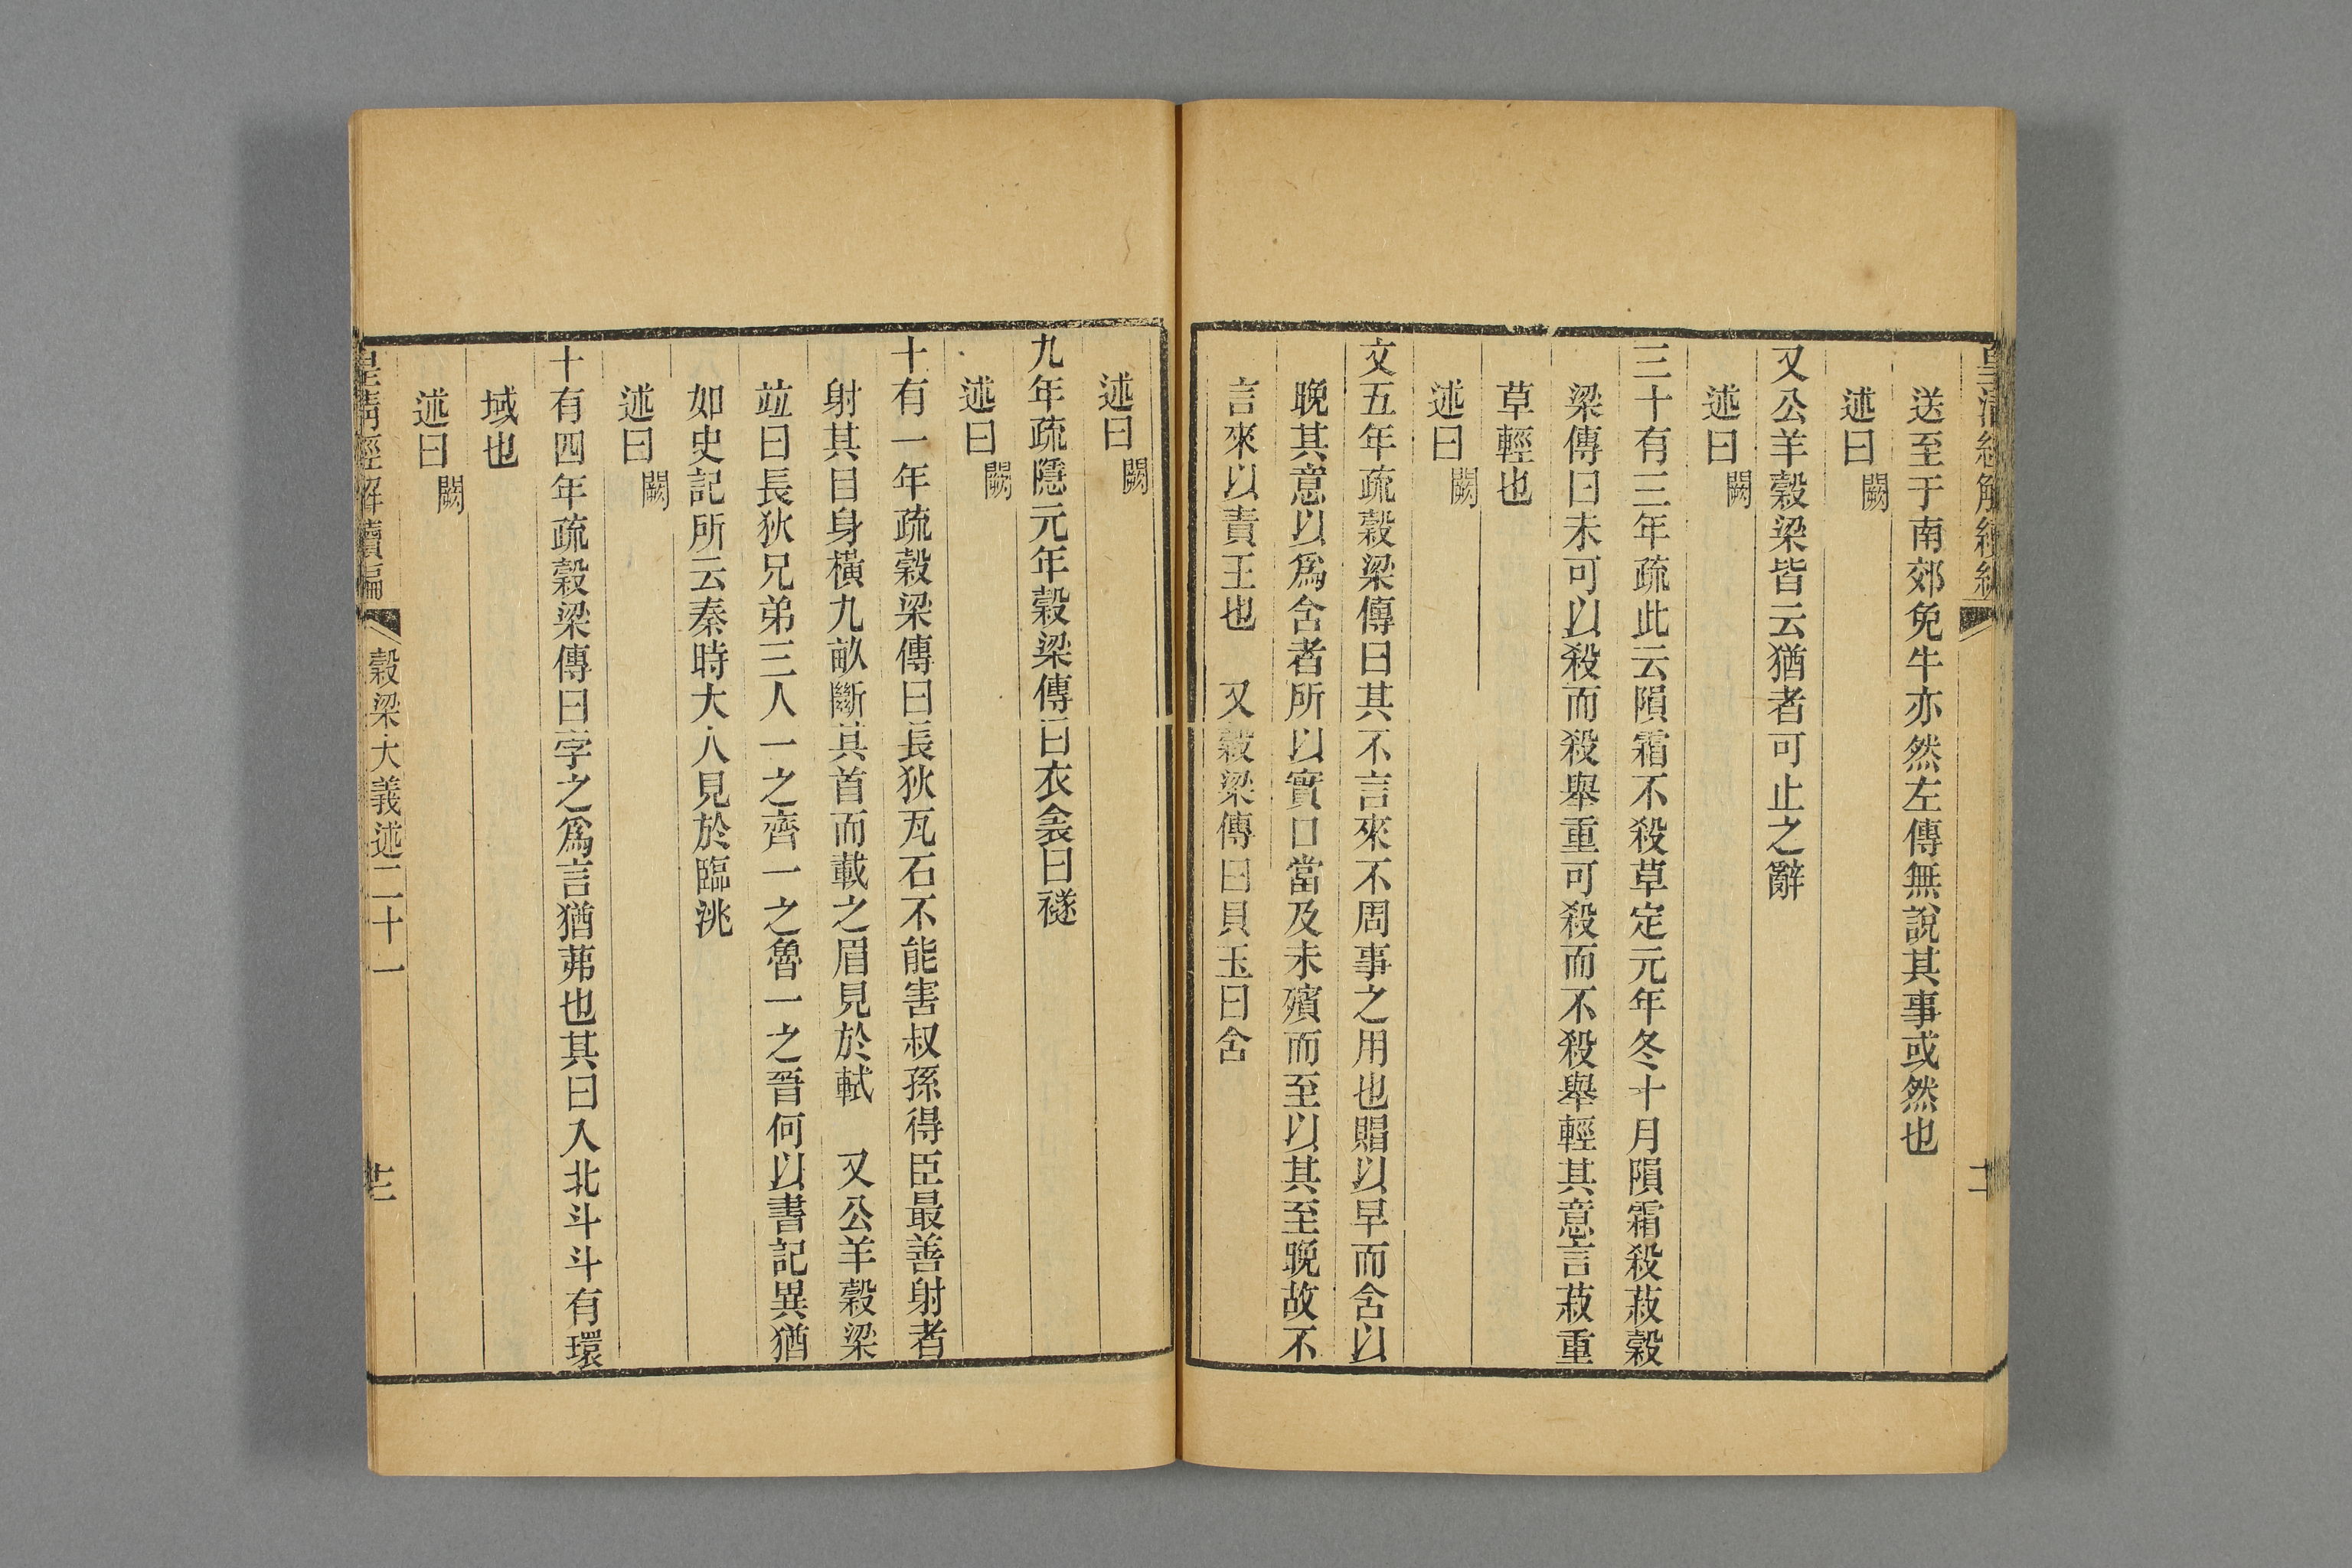 送至于南郊免牛亦然左傳無說其事或然也
述曰闕
又公羊穀梁皆云猶者可止之辭
述曰闕
三十有三年疏此云隕霜不殺草定元年冬十月隕霜殺菽穀
梁傳曰未可以殺而殺舉重可殺而不殺舉輕其意言菽重
草輕也
述曰闕
文五年疏穀梁傳曰其不言來不周事之用也賵以早而含以
晚其意以爲含者所以實口當及未殯而至以其至晚故不
言來以責王也　又穀梁傳曰貝玉曰含
述曰闕
九年疏隱元年穀梁傳曰衣衾曰襚
述曰闕
十有一年疏穀梁傳曰長狄瓦石不能害叔孫得臣最善射者
射其目身橫九畝斷其首而載之眉見於軾　又公羊穀梁
竝曰長狄兄弟三人一之齊一之魯一之晉何以書記異猶
如史記所云秦時大人見於臨洮
述曰闕
十有四年疏穀梁傳曰孛之爲言猶茀也其曰入北斗斗有環
域也
述曰闕
皇清經解續編
穀梁大義述二十一